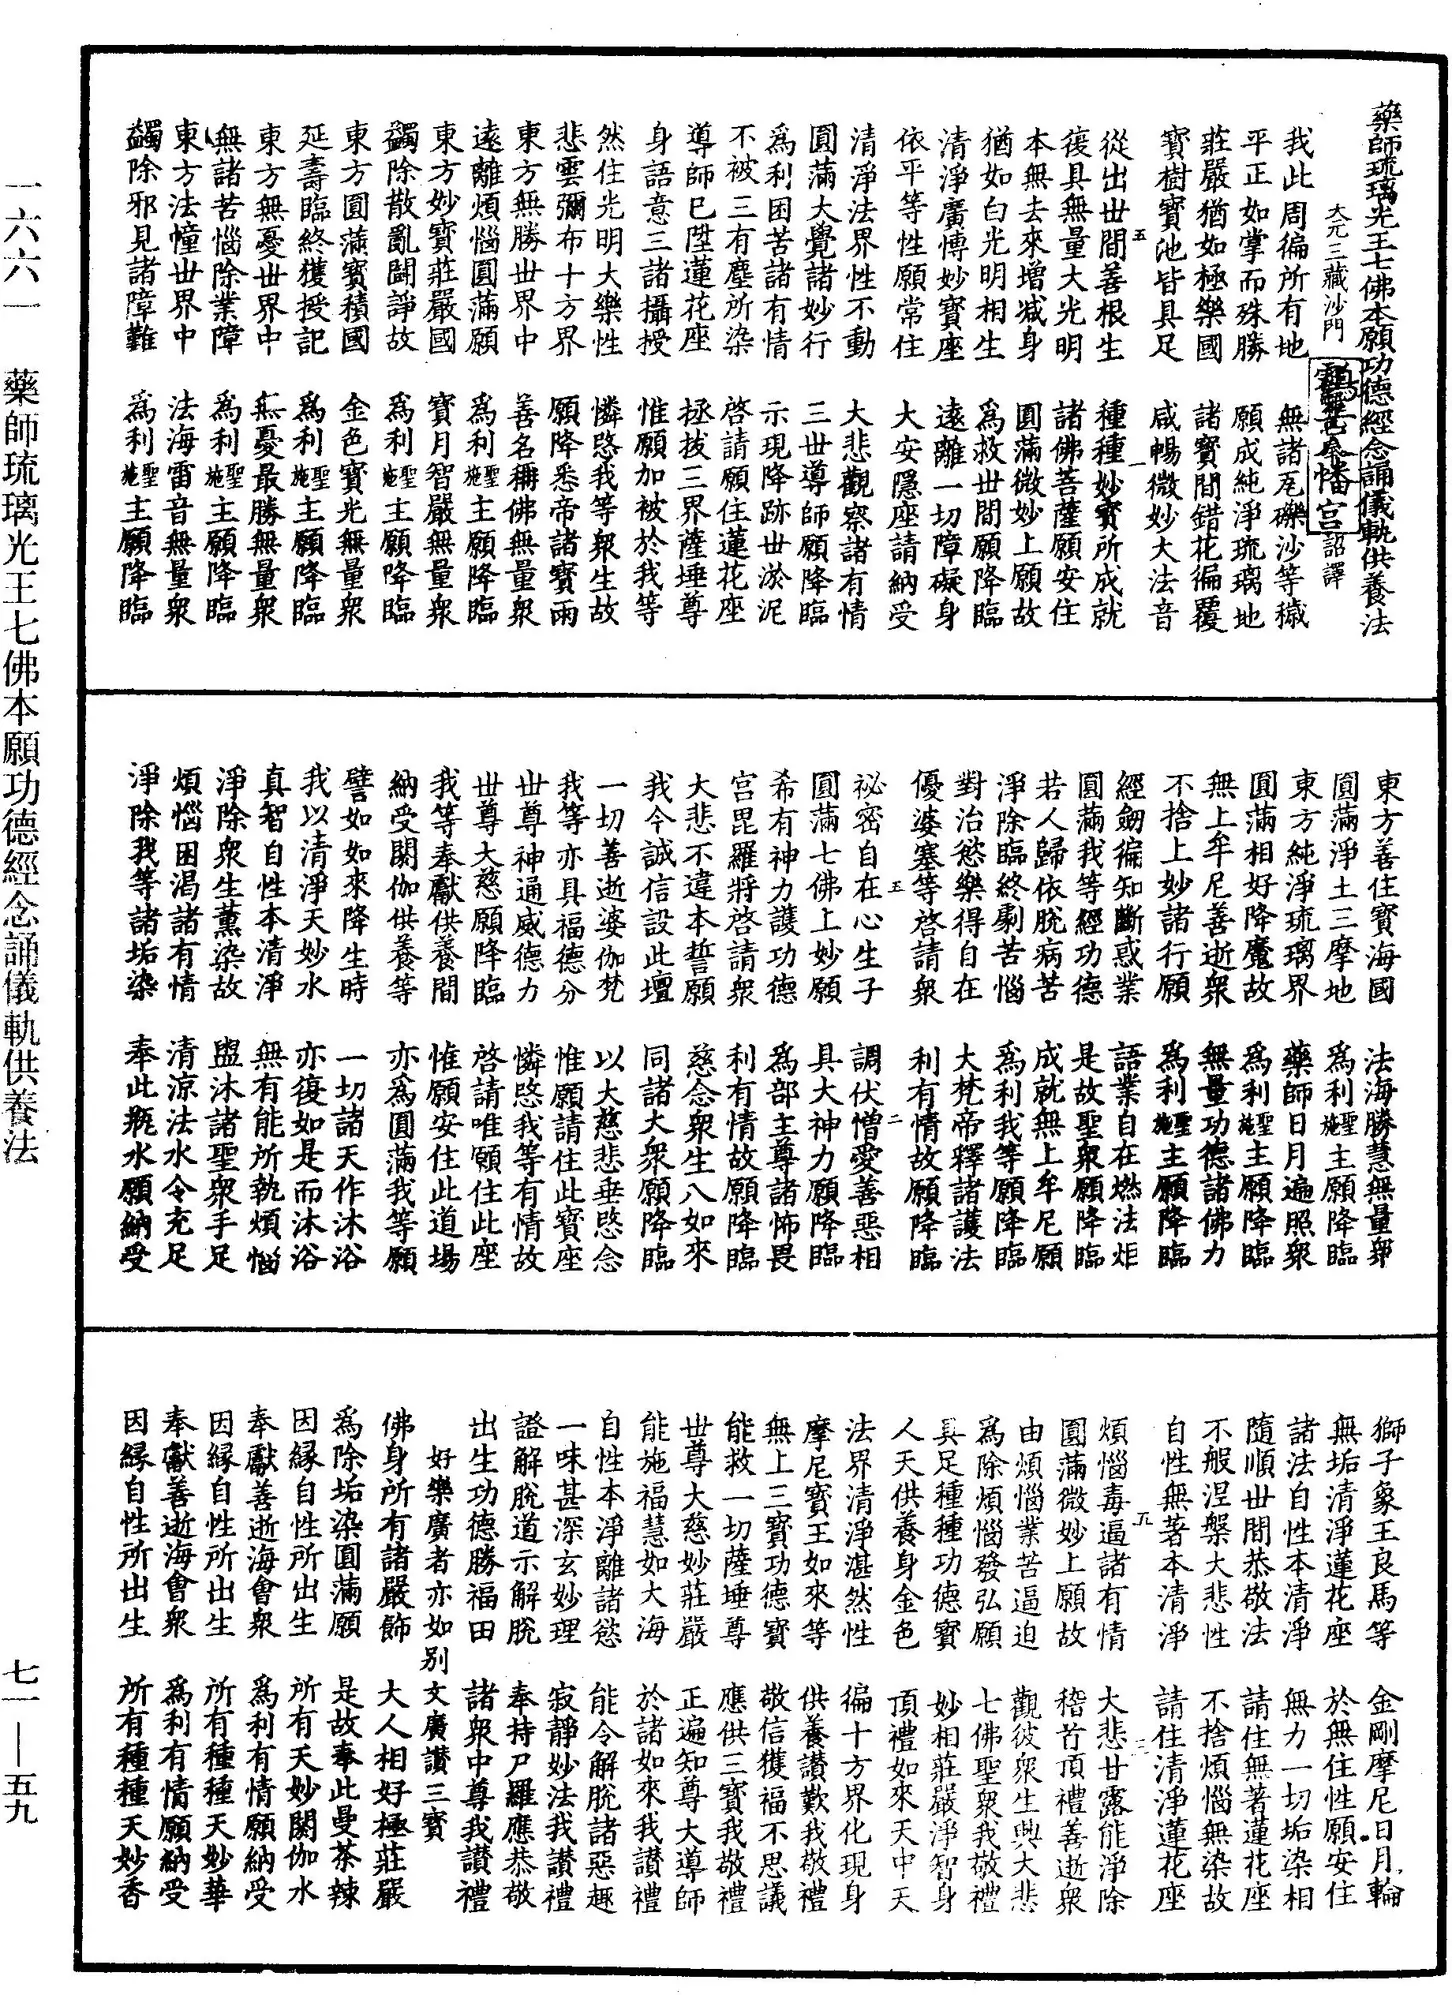 藥師琉璃光王七佛本願功德經念誦儀軌供養法
大元三藏沙門 詔譯
我此周徧所有地 無諸瓦礫沙等穢
平正如掌而殊勝 願成純淨琉璃地
莊嚴猶如極樂國 諸寶間錯花徧覆
寶樹寶池皆具足 咸暢微妙大法音
從出世間善根生 種種妙寶所成就
復具無量大光明 諸佛菩薩願安住
本無去來增減身 圓滿微妙上願故
猶如白光明相生 為救世間願降臨
清淨廣博妙寶座 遠離一切障礙身
依平等性願常住 大安隱座請納受
清淨法界性不動 大悲觀察諸有情
圓滿大覺諸妙行 三世導師願降臨
為利困苦諸有情 示現降跡世淤泥
不被三有塵所染 啓請願住蓮花座
導師已陞蓮花座 拯拔三界薩埵尊
身語意三諸攝授 惟願加被於我等
然住光明大樂性 憐愍我等衆生故
悲雲彌布十方界 願降悉帝諸寶雨
東方無勝世界中 善名稱佛無量衆
遠離煩惱圓滿願 為利施聖主願降臨
東方妙寶莊嚴國 寶月智嚴無量衆
蠲除散亂鬪諍故 為利施聖主願降臨
東方圓滿寶積國 金色寶光無量衆
延壽臨終獲授記 為利施聖主願降臨
東方無憂世界中 無憂最勝無量衆
無諸苦惱除業障 為利施聖主願降臨
東方法幢世界中 法海雷音無量衆
蠲除邪見諸障難 為利施聖主願降臨
東方善住寶海國 法海勝慧無量衆
圓滿淨土三摩地 為利施聖主願降臨
東方純淨琉璃界 藥師日月遍照衆
圓滿相好降魔故 為利施聖主願降臨
無上牟尼善逝衆 無量功德諸佛力
不捨上妙諸行願 為利施聖主願降臨
經劒徧知斷惑業 語業自在燃法炬
圓滿我等經功德 是故聖衆願降臨
若人歸依脫病苦 成就無上牟尼願
淨除臨終劇苦惱 為利我等願降臨
對治慾樂得自在 大梵帝釋諸護法
優婆塞等啓請衆 利有情故願降臨
祕密自在心生子 調伏憎愛善惡相
圓滿七佛上妙願 具大神力願降臨
希有神力護功德 為部主尊諸怖畏
宮毘羅將啓請衆 利有情故願降臨
大悲不違本誓願 慈念衆生八如來
我今誠信設此壇 同諸大衆願降臨
一切善逝婆伽梵 以大慈悲垂愍念
我等亦具福德分 惟願請住此寶座
世尊神通威德力 憐愍我等有情故
世尊大慈願降臨 啓請唯願住此座
我等奉獻供養間 惟願安住此道場
納受閼伽供養等 亦為圓滿我等願
譬如如來降生時 一切諸天作沐浴
我以清淨天妙水 亦復如是而沐浴
真智自性本清淨 無有能所執煩惱
淨除衆生薰染故 盥沐諸聖衆手足
煩惱困渴諸有情 清涼法水令充足
淨除我等諸垢染 奉此瓶水願納受
獅子象王良馬等 金剛摩尼日月輪
無垢清淨蓮花座 於無住性願安住
諸法自性本清淨 無力一切垢染相
隨順世間恭敬法 請住無著蓮花座
不般涅槃大悲性 不捨煩惱無染故
自性無著本清淨 請住清淨蓮花座
煩惱毒逼諸有情 大悲甘露能淨除
圓滿微妙上願故 稽首頂禮善逝衆
由煩惱業苦逼迫 觀彼衆生興大悲
為除煩惱發弘願 七佛聖衆我敬禮
具足種種功德寶 妙相莊嚴淨智身
人天供養身金色 頂禮如來天中天
法界清淨湛然性 徧十方界化現身
摩尼寶王如來等 供養讃歎我敬禮
無上三寶功德寶 敬信獲福不思議
能救一切薩埵尊 應供三寶我敬禮
世尊大慈妙莊嚴 正遍知尊大導師
能施福慧如大海 於諸如來我讃禮
自性本淨離諸慾 能令解脫諸惡趣
一味甚深玄妙理 寂靜妙法我讃禮
證解脫道示解脫 奉持尸羅應恭敬
出生功德勝福田 諸衆中尊我讃禮
好樂廣者亦如別文廣讃三寶
佛身所有諸嚴飾 大人相好極莊嚴
為除垢染圓滿願 是故奉此曼荼辣
因緣自性所出生 所有天妙閼伽水
奉獻善逝海會衆 為利有情願納受
因緣自性所出生 所有種種天妙華
奉獻善逝海會衆 為利有情願納受
因緣自性所出生 所有種種天妙香
一六六一 藥師琉璃光王七佛本願功德經念誦儀軌供養法 七一—五九